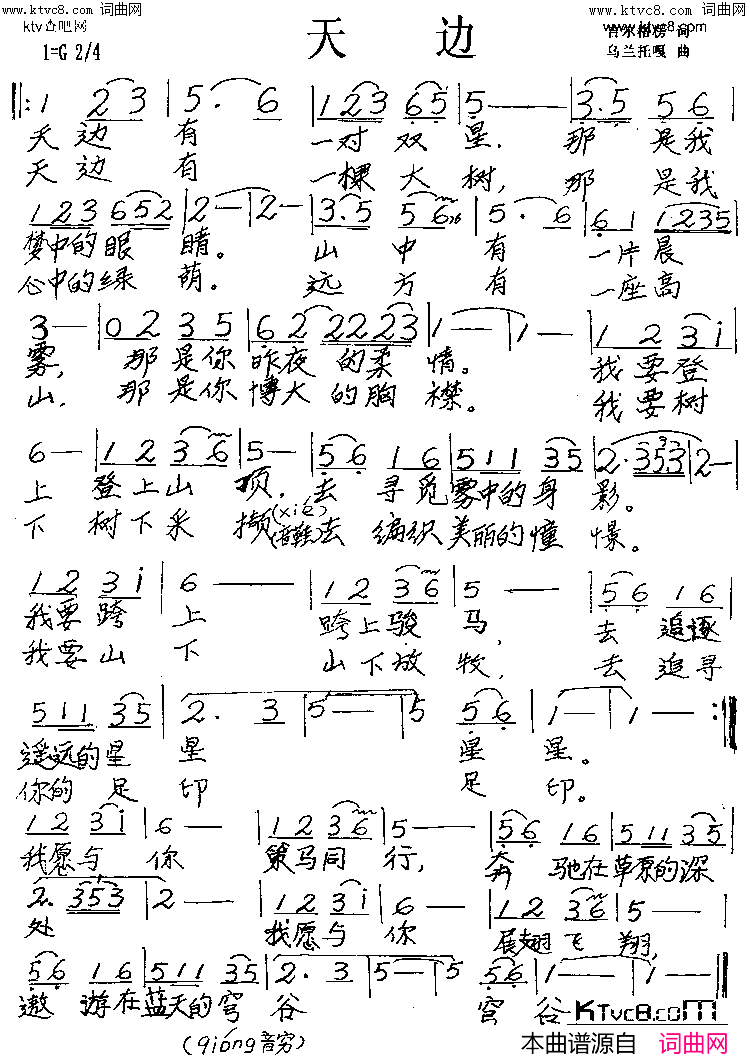 www.ktvc8.com 词曲网
www.ktvc8.com 词曲网
ktv点吧网
天 边
1=G 2/4
词
乌兰托嘎 曲
1 2 3 5. 6 1 2 3 6 5 5 — — 3. 5 5 6
天 边 有 一对 双 星. 那 是我
天 边 有 一棵 大 树, 那 是我
1 2 3 6 5 2 2 — 2 — 3. 5 5 6 5. 6 6 1 1 2 3 5
梦中的眼 睛。 山 中 有 一片晨
心中的绿 荫。 远 方 有 一座高
3 — 0 2 3 5 6 2 2 2 2 3 1 — 1 — 1 2 3 i
雾, 那 是你 昨夜 的柔 情。 我 要登
山. 那 是你 博大 的胸 襟。 我 要树
6 — 1 2 3 6 5 — 5 6 1 6 5 1 1 3 5 2. 3 5 3 2 —
上 登上山 顶, 去 寻觅雾中的身 影。
下 树下采 撷(xié)(音鞋)去 编织美丽的憧 憬。
1 2 3 i 6 — — 1 2 3 6 5 — 5 6 1 6
我要跨 上 跨上骏 马, 去 追逐
我要山 下 山下放 牧, 去 追寻
5 1 1 3 5 2. 3 5 — 5 5 6 1 — 1 —
遥远的星 星 星 星。
你的 足 印 足 印。
1 2 3 i 6 — 1 2 3 6 5 — 5 6 1 6 5 1 1 3 5
我愿与 你 策马同 行, 奔 驰在草原的深
2. 3 5 3 2 — 1 2 3 i 6 — 1 2 3 6 5 —
处 我愿与 你 展翅飞 翔,
5 6 1 6 5 1 1 3 5 2. 3 5 — 5 — 5 6 1 — 1 —
遨 游在蓝天的穹 谷 穹 谷
(qióng音穷)
KTvc8.com
本曲谱源自 词曲网